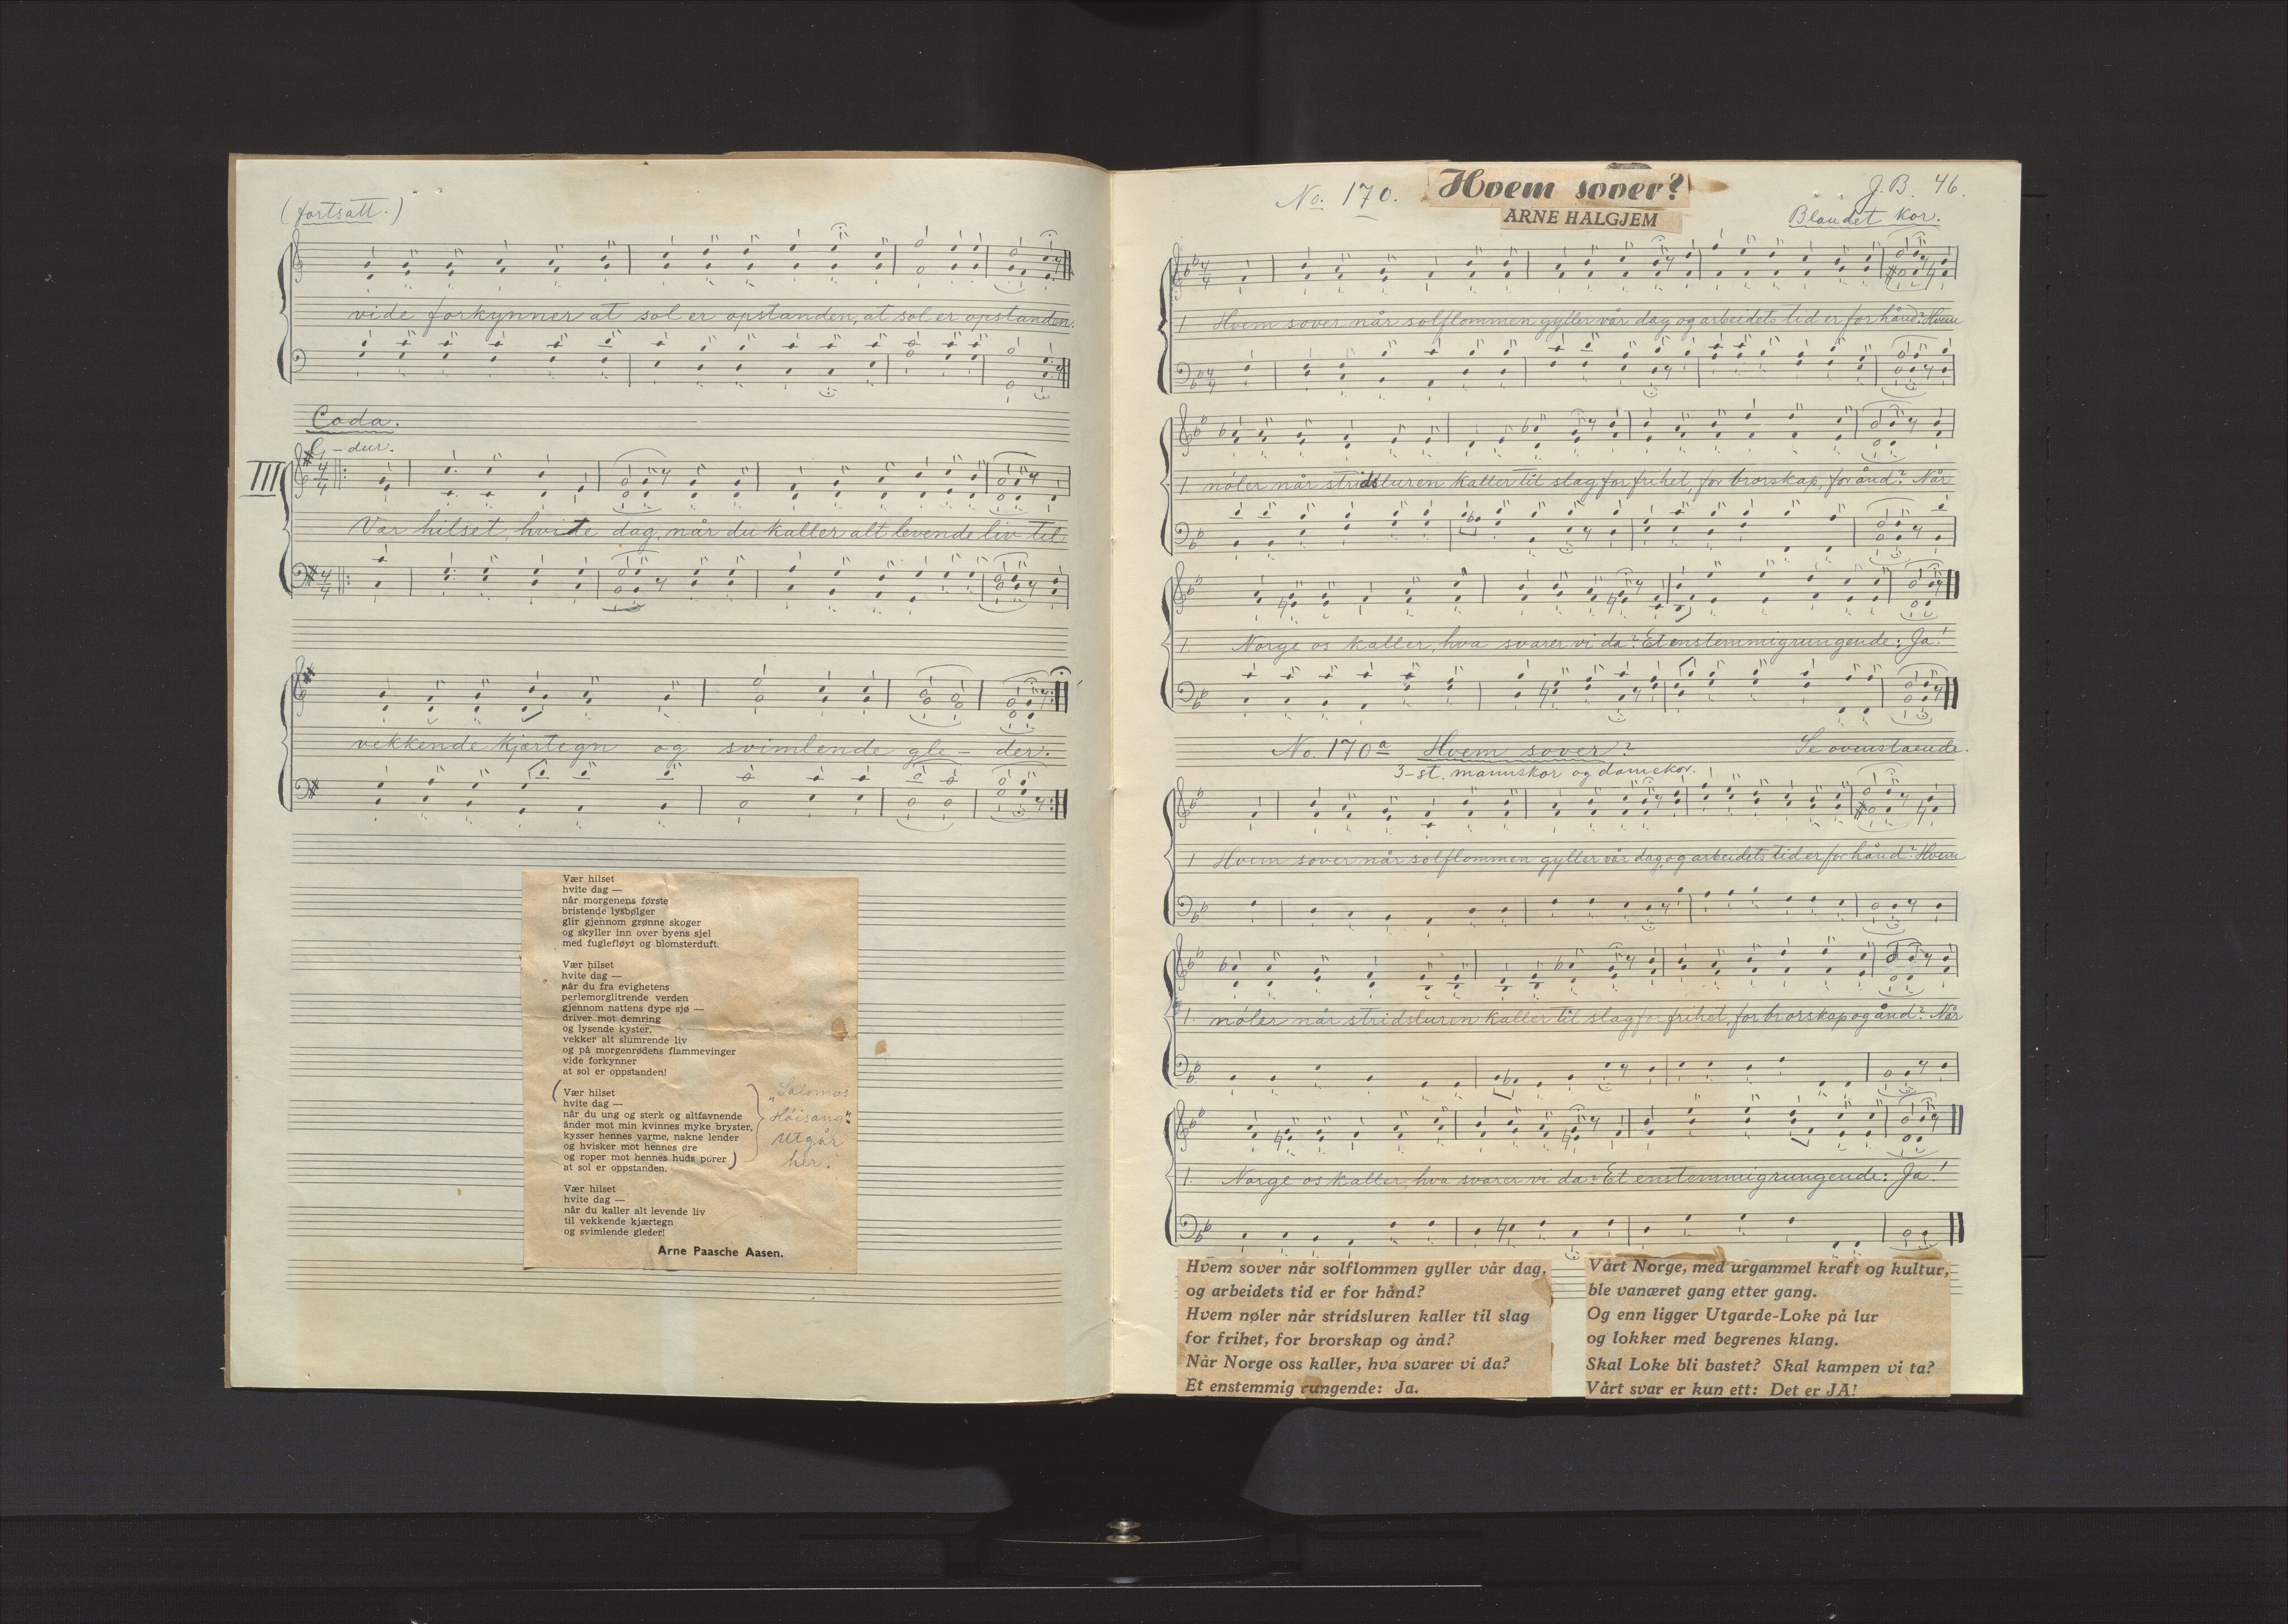 (fortsatt.)
vide forkynner at sol er opstanden, at sol er opstanden.
Coda.
G-dur.
III
Vær hilset, hvite dag, når du kaller alt levende liv til
vekkende kjærtegn og svimlende gle- der.
Vær hilset
hvite dag —
når morgenens første
bristende lysbølger
glir gjennom grønne skoger
og skyller inn over byens sjel
med fuglefløyt og blomsterduft.
Vær hilset
hvite dag —
når du fra evighetens
perlemorglitrende verden
gjennom nattens dype sjø —
driver mot demring
og lysende kyster,
vekker alt slumrende liv
og på morgenrødens flammevinger
vide forkynner
at sol er oppstanden!
(Vær hilset
hvite dag —
når du ung og sterk og altfavnende
ånder mot min kvinnes myke bryster,
kysser hennes varme, nakne lender
og hvisker mot hennes øre
og roper mot hennes huds porer)
at sol er oppstanden.
"Salomos
Höisang"
utgår
her.
Vær hilset
hvite dag —
når du kaller alt levende liv
til vekkende kjærtegn
og svimlende gleder!
Arne Paasche Aasen.
No. 170. Hvem sover? J.B. 46.
ARNE HALGJEM
Blandet kor.
1 Hvem sover når solflommen gyller vår dag og arbeidets tid er for hånd? Hvem
1. nöler når stridsluren kaller til slag for frihet, for brorskap, for ånd? Når
1. Norge os kaller, hva svarer vi da? Et enstemmig rungende: Ja!
No. 170a Hvem sover? Se ovenstaende.
3-st. mannskor og damekor.
1 Hvem sover når solflommen gyller vår dag, og arbeidets tid er for hånd? Hvem
1. nöler når stridsluren kaller til slag for frihet, for brorskap og ånd? Når
1. Norge os kaller, hva svarer vi da? Et enstemmig rungende: Ja!
Hvem sover når solflommen gyller vår dag,
og arbeidets tid er for hånd?
Hvem nøler når stridsluren kaller til slag
for frihet, for brorskap og ånd?
Når Norge oss kaller, hva svarer vi da?
Et enstemmig rungende: Ja.
Vårt Norge, med urgammel kraft og kultur,
ble vanæret gang etter gang.
Og enn ligger Utgarde-Loke på lur
og lokker med begrenes klang.
Skal Loke bli bastet? Skal kampen vi ta?
Vårt svar er kun ett: Det er JA!